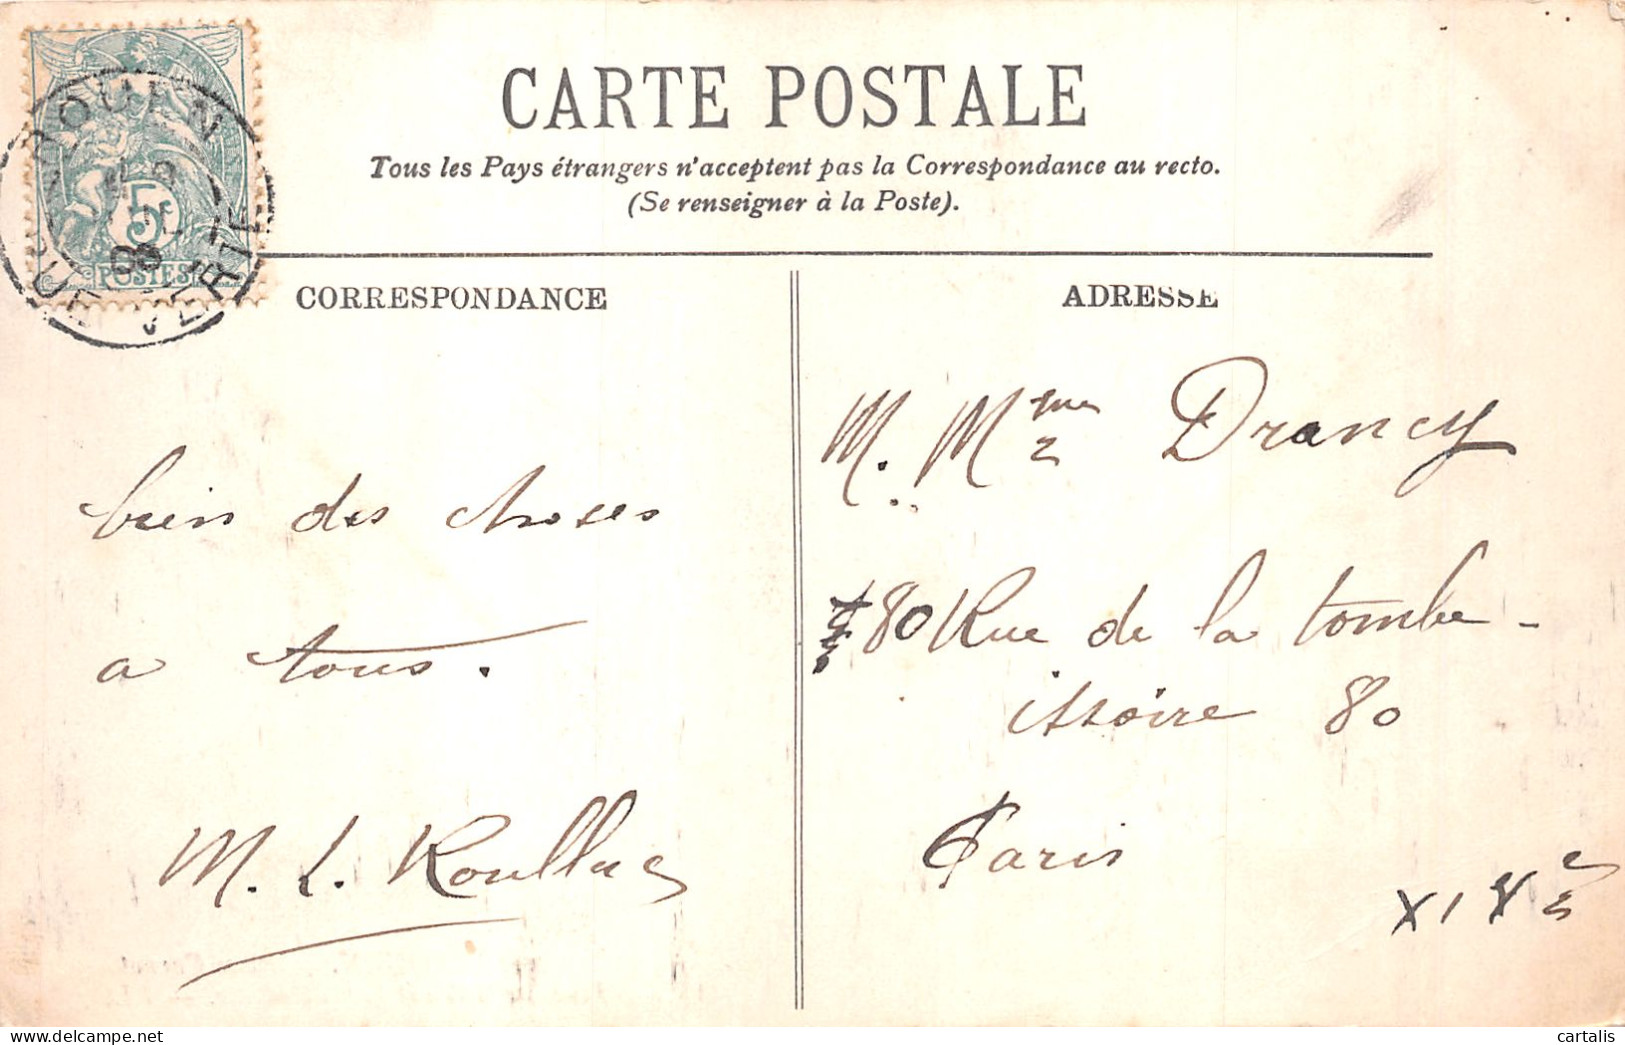 CARTE POSTALE
Tous les Pays étrangers n'acceptent pas la Correspondance au recto.
(Se renseigner à la Poste).
ROUEN
RUE VERTE
5
POSTES
CORRESPONDANCE
ADRESSE
bien des choses
a tous.
M. L.
M. Mme Drancy
80 Rue de la tombe-
issoire 80
Paris
XIVe
cartalis